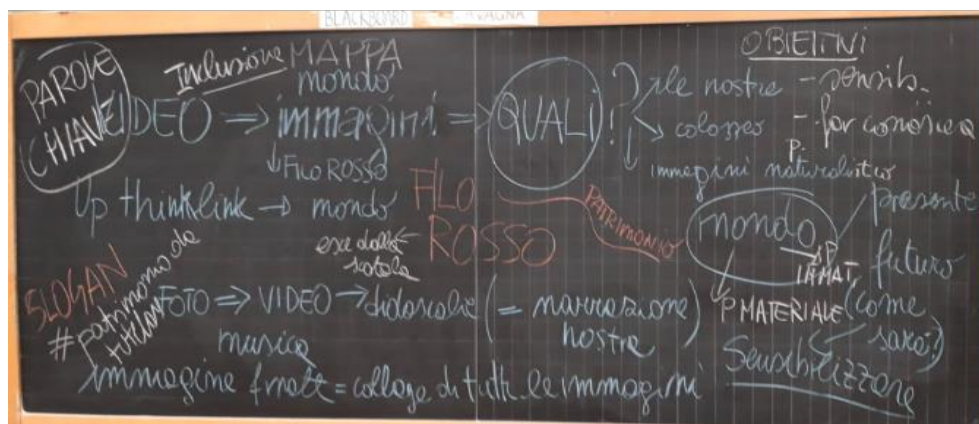 BLACKBOARD
PAROLE CHIAVE
Inclusione MAPPA
mondo
VIDEO => immagini => QUALI?
↓ FILO ROSSO
thinklink → mondo
FILO ROSSO
esce dalla scatola
SLOGAN
#patrimonio da tutelare
FOTO => VIDEO → didascalie (= narrazione nostra)
musica
immagine finale = collage di tutte le immagini
OBIETTIVI
le nostre
- sensib.
→ colosseo
- far conoscere
↓ immagini
P. naturalistico
PATRIMONIO
mondo
presente
futuro
(come sarà?)
P IMMAT.
P MATERIALE
Sensibilizzare